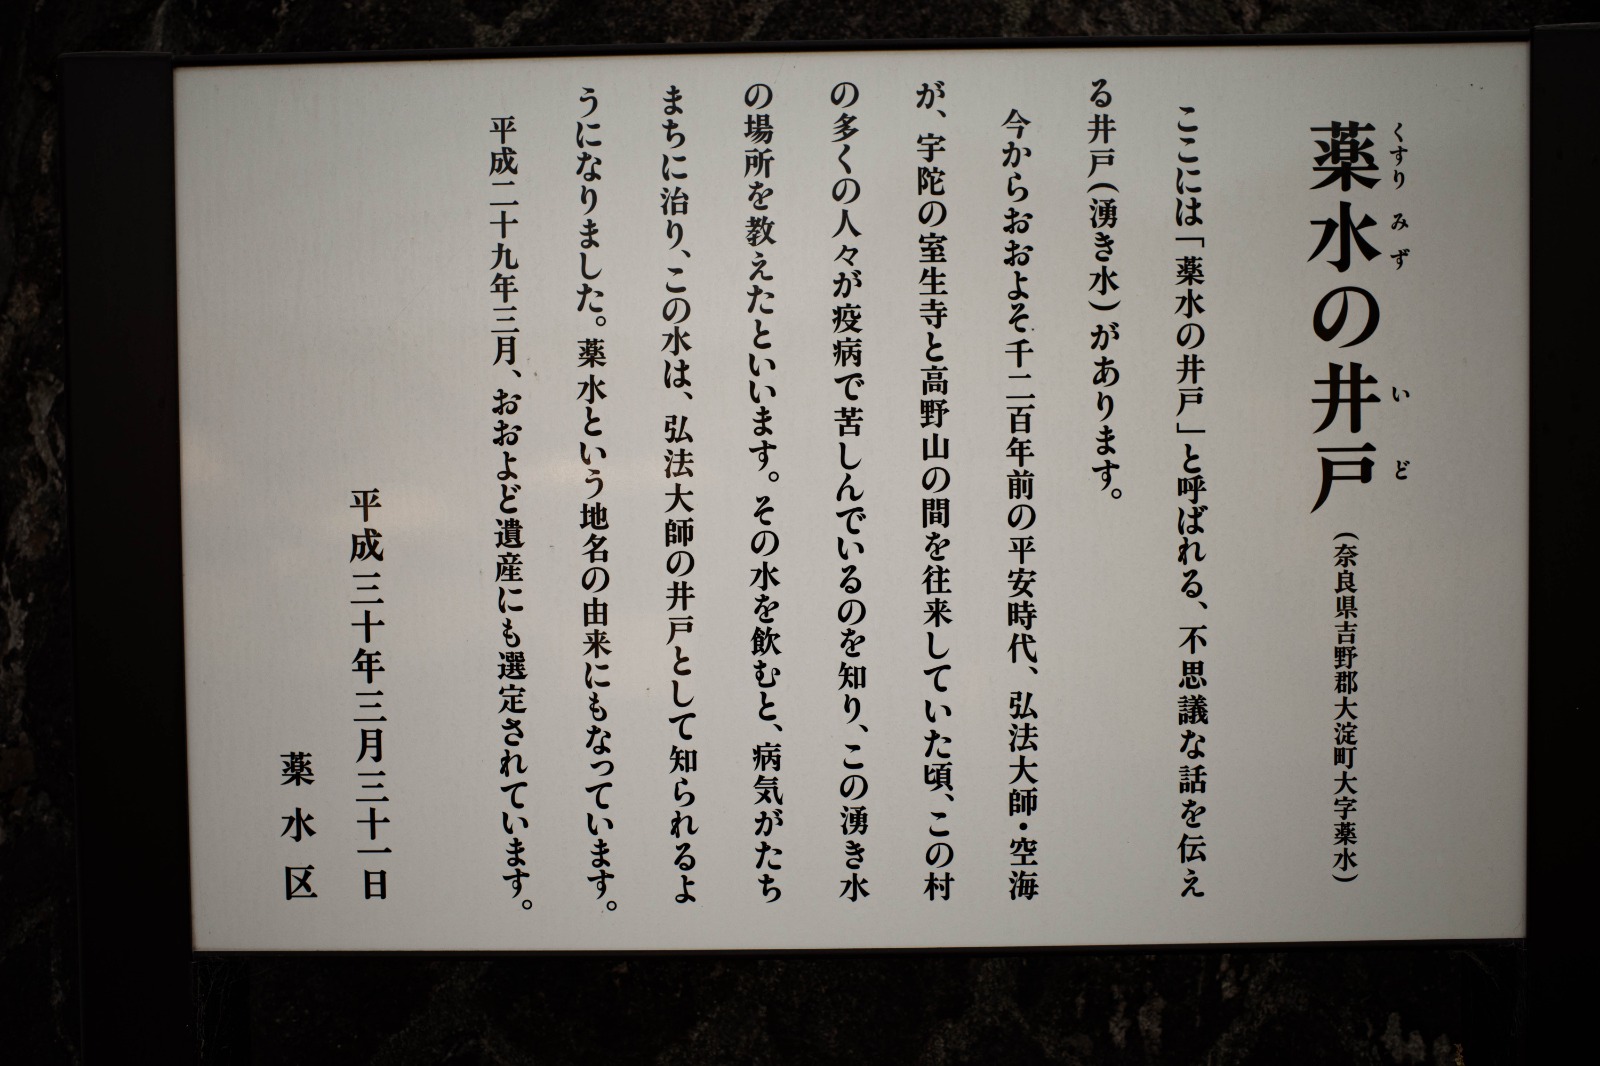 薬水の井戸(奈良県吉野郡大淀町大字薬水)
くすりみず いど
ここには「薬水の井戸」と呼ばれる、不思議な話を伝え
る井戸(湧き水)があります。
今からおおよそ千二百年前の平安時代、弘法大師・空海
が、宇陀の室生寺と高野山の間を往来していた頃、この村
の多くの人々が疫病で苦しんでいるのを知り、この湧き水
の場所を教えたといいます。その水を飲むと、病気がたち
まちに治り、この水は、弘法大師の井戸として知られるよ
うになりました。薬水という地名の由来にもなっています。
平成二十九年三月、おおよど遺産にも選定されています。
平成三十年三月三十一日
薬水区